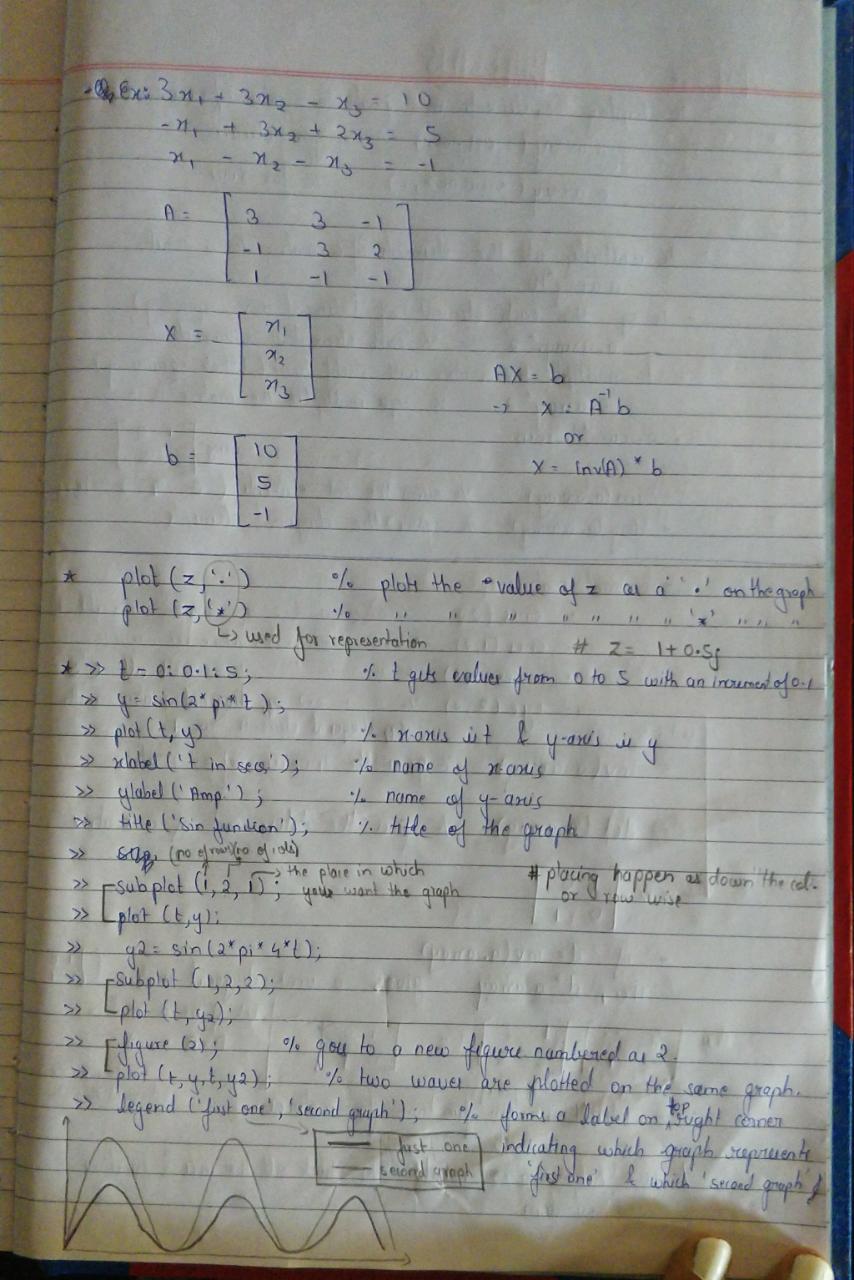 Ex: 3x₁ + 3x₂ - x₃ = 10
-x₁ + 3x₂ + 2x₃ = 5
x₁ - x₂ - x₃ = -1
A = [ 3 3 -1
-1 3 2
1 -1 -1 ]
X = [ x₁
x₂
x₃ ]
AX = b
→ X = A⁻¹b
or
X = inv(A) * b
b = [ 10
5
-1 ]
* plot (z, '.') % plots the value of z as a '.' on the graph
plot (z, '*') % " " " " " '*' " " "
↳ used for representation # z = 1+0.5j
* >> t = 0:0.1:5; % t gets values from 0 to 5 with an increment of 0.1
>> y = sin(2*pi*t);
>> plot(t,y) % x-axis is t & y-axis is y
>> xlabel('t in secs'); % name of x-axis
>> ylabel('Amp'); % name of y-axis
>> title('Sin function'); % title of the graph
>> (no of rows) (no of cols)
→ the place in which
>> subplot (1, 2, 1); you want the graph # placing happen as down the col.
or row wise
>> plot (t,y);
>> y2 = sin(2*pi*4*t);
>> subplot (1,2,2);
>> plot (t,y2);
>> figure (2); % goes to a new figure numbered as 2.
>> plot (t,y,t,y2); % two waves are plotted on the same graph.
>> legend ('first one', 'second graph'); % forms a label on top right corner
first one indicating which graph represents
second graph 'first one' & which 'second graph'